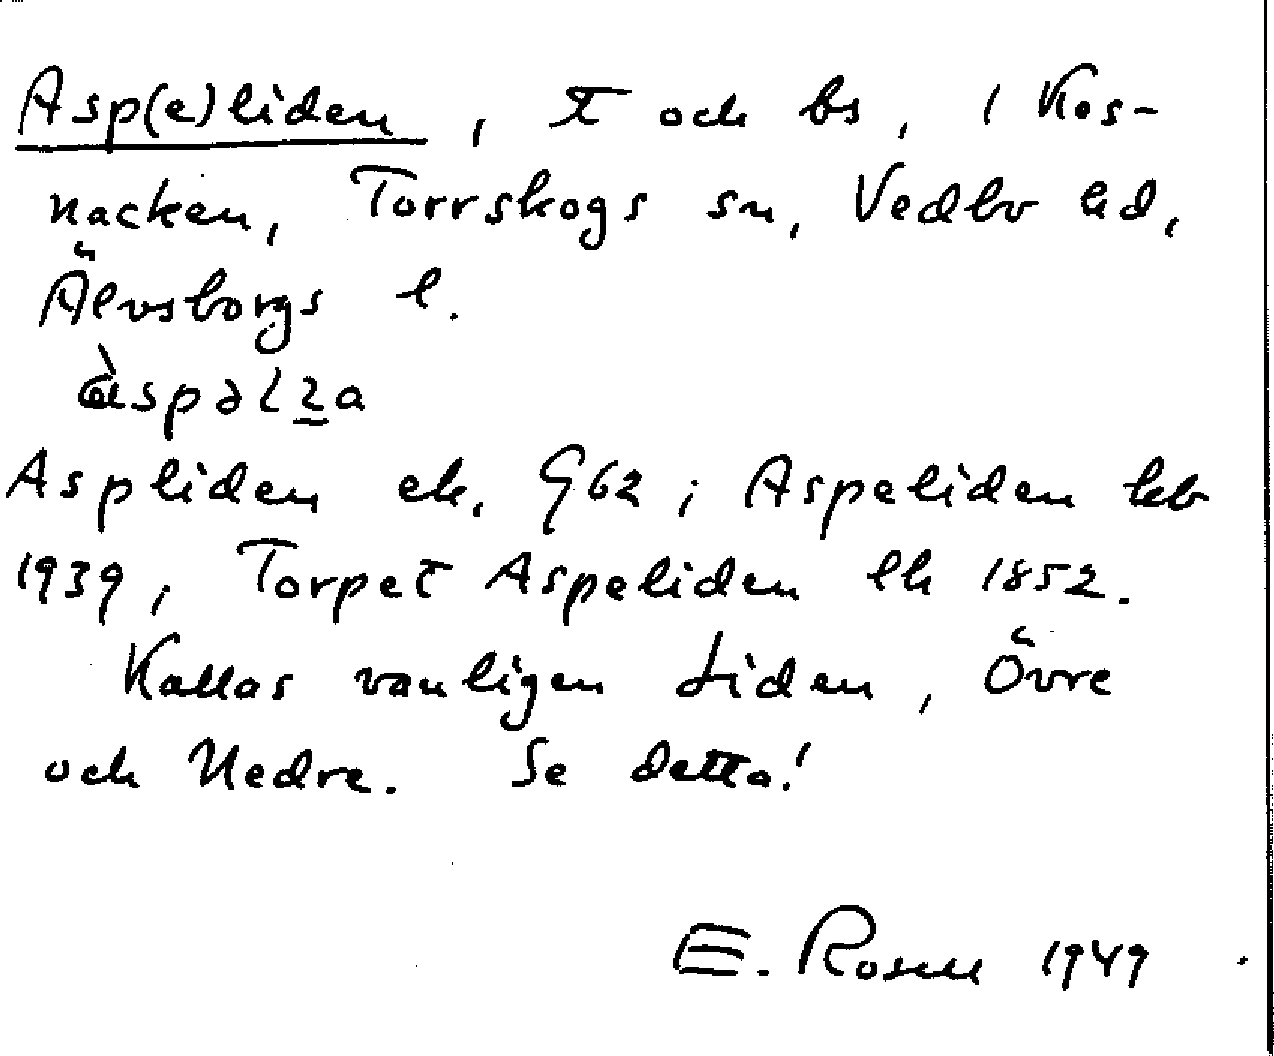 Asp(e)liden, t och bs, i Kos-
nacken, Torrskogs sn, Vedbo hd,
Älvsborgs l.
Aspliden ek. 962; Aspeliden kb
1939, Torpet Aspeliden lh 1852.
Kallas vanligen Liden, Övre
och Nedre. Se detta!
E. Rosell 1949